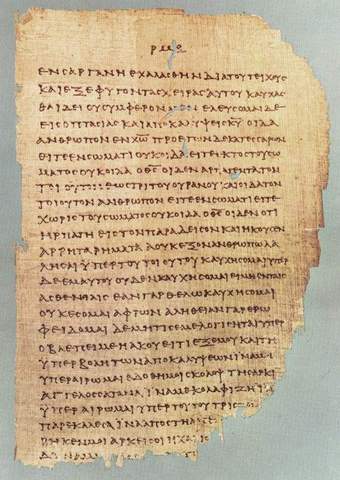 ΕΝϹΑΡΓΑΝΗΕΧΑΛΑϹΘΗΝΔΙΑΤΟΥΤΕΙΧΟΥϹ
ΚΑΙΕΞΕΦΥΓΟΝΤΑϹΧΕΙΡΑϹΑΥΤΟΥΚΑΥΧΑϹ
ΘΑΙΔΕΙΟΥϹΥΜΦΕΡΟΝΜΕΝΕΛΕΥϹΟΜΑΙΔΕ
ΕΙϹΟΠΤΑϹΙΑϹΚΑΙΑΠΟΚΑΛΥΨΕΙϹΚ̅Υ̅ΟΙΔΑ
ΑΝΘΡΩΠΟΝΕΝΧ̅Ω̅ΠΡΟΕΤΩΝΔΕΚΑΤΕϹϹΑΡΩΝ
ΕΙΤΕΕΝϹΩΜΑΤΙΟΥΚΟΙΔΑΕΙΤΕΕΚΤΟϹΤΟΥϹΩ
ΜΑΤΟϹΟΥΚΟΙΔΑΟΘ̅Ϲ̅ΟΙΔΕΝΑΡΠΑΓΕΝΤΑΤΟΝ
ΤΟΙΟΥΤΟΝΕΩϹΤΡΙΤΟΥΟΥΡΑΝΟΥΚΑΙΟΙΔΑΤΟΝ
ΤΟΙΟΥΤΟΝΑΝΘΡΩΠΟΝΕΙΤΕΕΝϹΩΜΑΤΙΕΙΤΕ
ΧΩΡΙϹΤΟΥϹΩΜΑΤΟϹΟΥΚΟΙΔΑΟΘ̅Ϲ̅ΟΙΔΕΝΟΤΙ
ΗΡΠΑΓΗΕΙϹΤΟΝΠΑΡΑΔΕΙϹΟΝΚΑΙΗΚΟΥϹΕΝ
ΑΡΡΗΤΑΡΗΜΑΤΑΑΟΥΚΕΞΟΝΑΝΘΡΩΠΩΛΑ
ΛΗϹΑΙΥΠΕΡΤΟΥΤΟΙΟΥΤΟΥΚΑΥΧΗϹΟΜΑΙΥΠΕΡ
ΔΕΕΜΑΥΤΟΥΟΥΔΕΝΚΑΥΧΗϹΟΜΑΙΕΙΜΗΕΝΤΑΙϹ
ΑϹΘΕΝΕΙΑΙϹΕΑΝΓΑΡΘΕΛΩΚΑΥΧΗϹΟΜΑΙ
ΟΥΚΕϹΟΜΑΙΑΦΡΩΝΑΛΗΘΕΙΑΝΓΑΡΕΡΩ
ΦΕΙΔΟΜΑΙΔΕΜΗΤΙϹΕΜΕΛΟΓΙϹΗΤΑΙΥΠΕΡ
ΟΒΛΕΠΕΙΜΕΗΑΚΟΥΕΙΤΙΕΞΕΜΟΥΚΑΙΤΗ
ΥΠΕΡΒΟΛΗΤΩΝΑΠΟΚΑΛΥΨΕΩΝΙΝΑΜΗ
ΥΠΕΡΑΙΡΩΜΑΙΕΔΟΘΗΜΟΙϹΚΟΛΟΨΤΗϹΑΡΚΙ
ΑΓΓΕΛΟϹϹΑΤΑΝΑΙΝΑΜΕΚΟΛΑΦΙΖΗΙΝΑ
ΥΠΕΡΑΙΡΩΜΑΙΥΠΕΡΤΟΥΤΟΥΤΡΙϹ
ΠΑΡΕΚΑΛΕϹΑΙΝΑΑΠΟϹΤΗ
ΡΗΚΕΝΜΟΙΑΡΚΕΙϹΟΙΗΧΑΡΙϹ